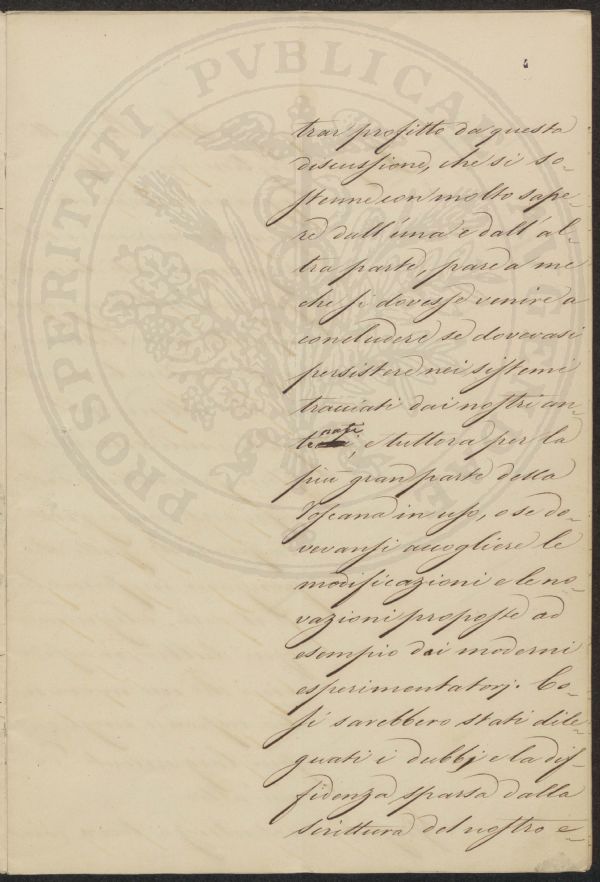 trar profitto da questa
discussione, che si so-
stenne con molto sape-
re dall'una e dall'al-
tra parte, pare a me
che si dovesse venire a
concludere se dovevasi
persistere nei sistemi
tracciati dai nostri an-
tenati, e tuttora per la
più gran parte della
Toscana in uso, o se do-
vevansi accogliere le
modificazioni e le no-
vazioni proposte ad
esempio dai moderni
esperimentatorj. Co-
si sarebbero stati dile-
guati i dubbj e la dif-
fidenza sparsa dalla
scrittura del nostro e-
PROSPERITATI PVBLICAE